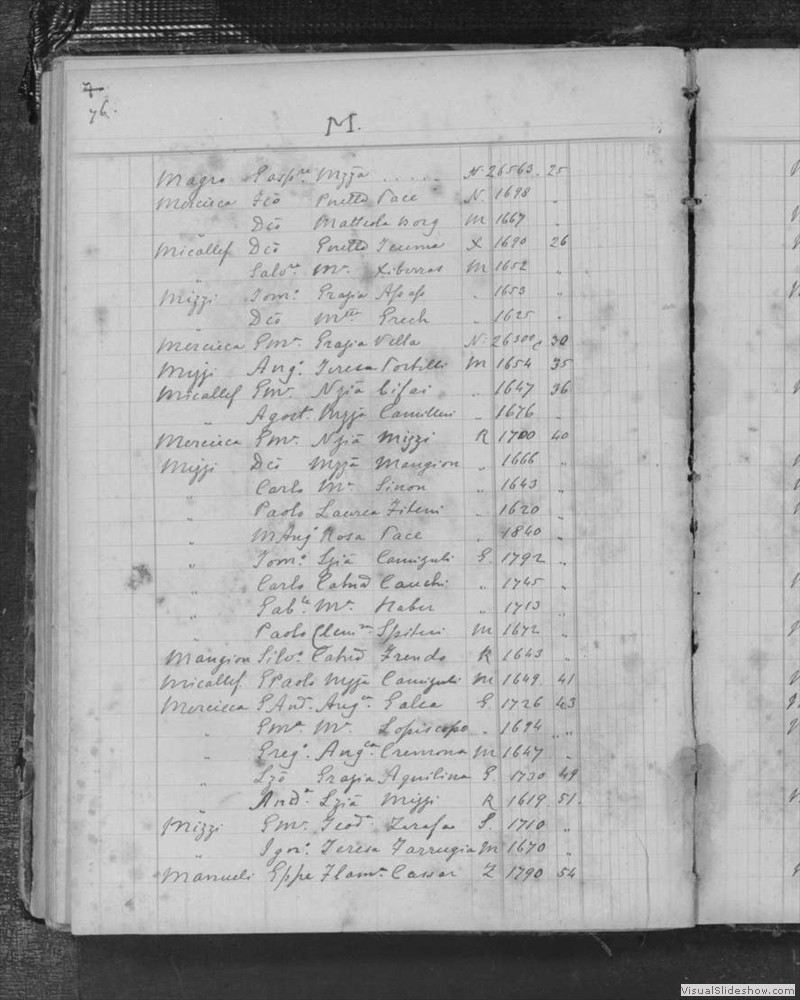 7
76.
M.
Magro Gasp.re Mzzā ...... N. 26563. 25
Mercieca Fcō Pnetta Pace N. 1698 "
" Dcō Matteola Borg M 1667 "
Micallef Dcō Gnetta Tecuma X 1690 26
" Salv.re M.a Xiberras M 1652 "
Mizzi Tom.o Grazia " 1653 "
" Dcō Grech " 1625 "
Mercieca Gm.a Grazia Vella N. 26300 30
Mizzi Ang.o Teresa Portelli M 1654 35
Micallef Gm.a Nziā Cifai " 1647 36
" Agost.o Mzzā Camilleri " 1676 "
Mercieca Gm.a Nziā Mizzi R 1700 40
Mizzi Dcō Mzzā Mangion " 1666 "
" Carlo M.a Sinon " 1643 "
" Paolo Laurea Fiteni " 1620 "
" M Ang.o Rosa Pace " 1840 "
" Tom.o Lziā Camizuli G 1792 "
" Carlo Catnā Cauchi " 1745 "
" Gab.le M.a Haber " 1713 "
" Paolo Clem.za Spiteri M 1672 "
Mangion Silv.o Catnā Frendo R 1643 "
Micallef GPaolo Mzzā Camizuli M 1649 41
Mercieca GAnd. Ang.ca Galea G 1726 43
" Gm.a M.a Lopiscopo " 1694 "
" Greg.o Ang.ca Cremona M 1647 "
" Lzō Grazia Aquilina G 1730 49
" And.a Lziā Mizzi R 1619 51.
Mizzi Gm.a Teod.a Zarafa S. 1710 "
" Igor.o Teresa Farrugia M 1670 "
Manueli Gppe Flam.a Cassar Z 1790 54
VisualSlideshow.com